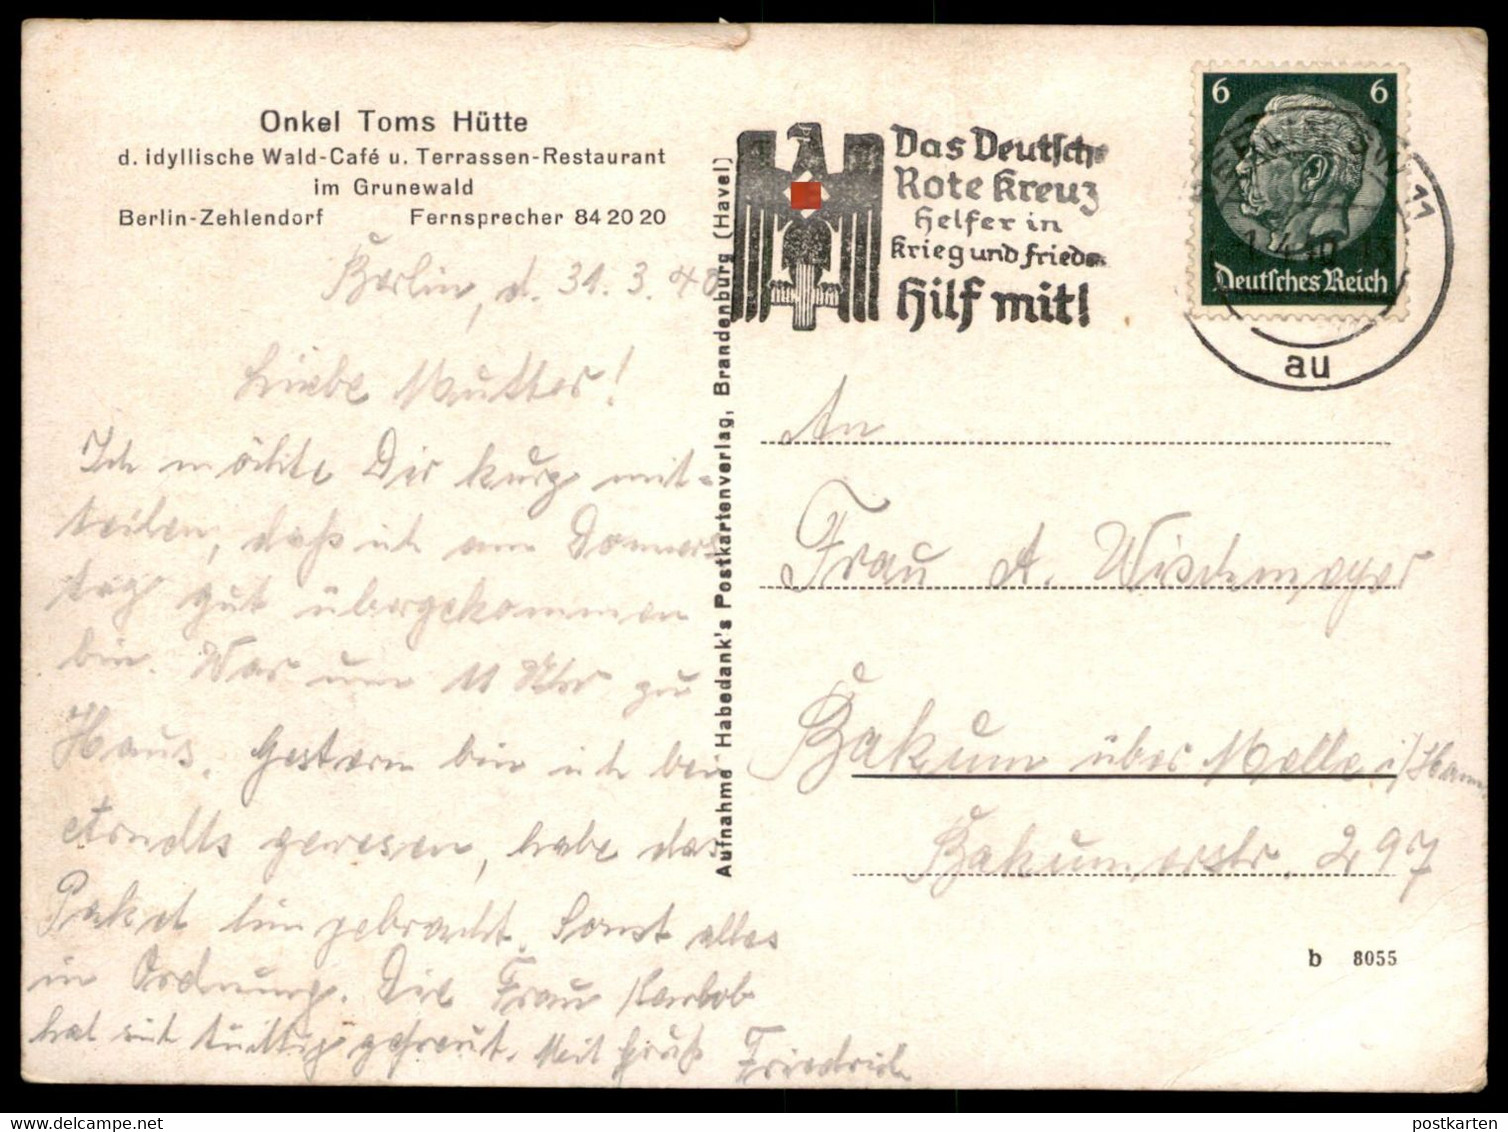 Onkel Toms Hütte
d. idyllische Wald-Café u. Terrassen-Restaurant
im Grunewald
Berlin-Zehlendorf Fernsprecher 84 20 20
Berlin, d. 31. 3. 40
Liebe Mutter!
Ich möchte Dir kurz mit-
teilen, daß ich am Donners
tag gut übergekommen
bin. War um 11 Uhr zu
Haus. Gestern bin ich bei
Arndts gewesen, habe das
Paket hingebracht. Sonst alles
in Ordnung. Die Frau
hat sich tüchtig gefreut. Mit Gruß Friedrich
Aufnahme Habedank's Postkartenverlag, Brandenburg (Havel)
Das Deutsche
Rote Kreuz
Helfer in
Krieg und Frieden
Hilf mit!
6 6
Deutsches Reich
11
au
An
Frau A. Wischmeyer
Bakum über Melle i/Hann.
Bakumerstr. 297
b 8055
postkarten